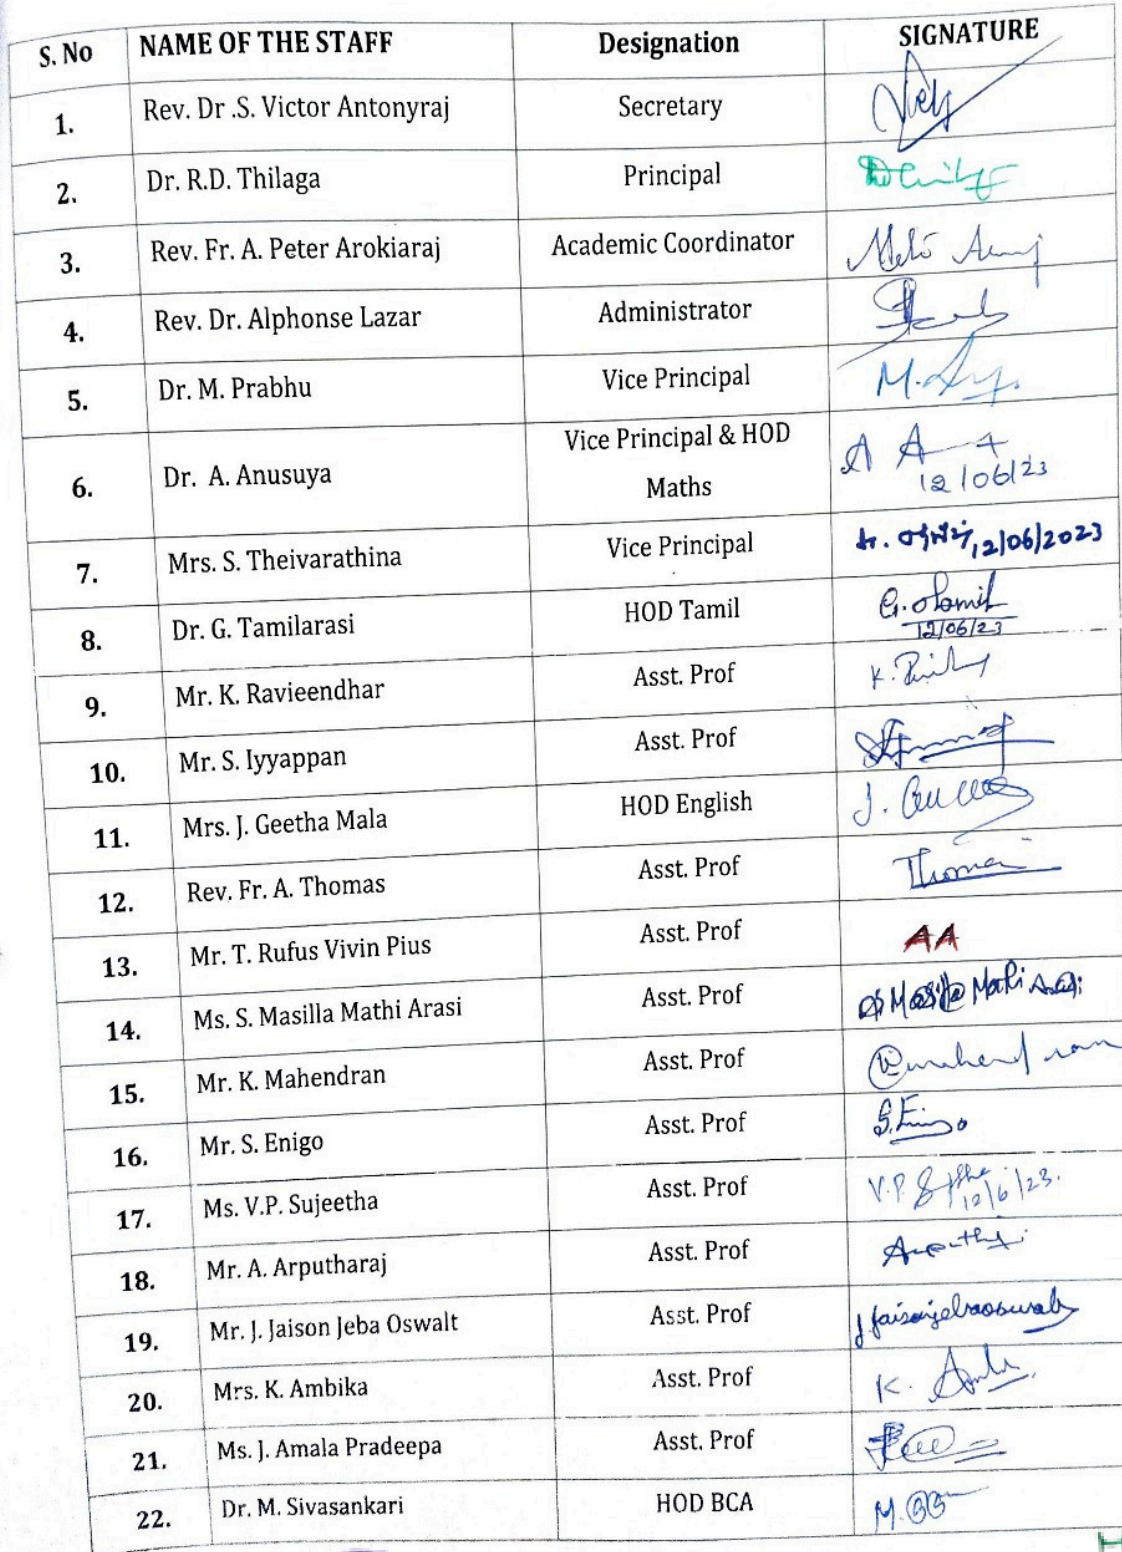 S. No NAME OF THE STAFF Designation SIGNATURE
1. Rev. Dr .S. Victor Antonyraj Secretary
2. Dr. R.D. Thilaga Principal
3. Rev. Fr. A. Peter Arokiaraj Academic Coordinator
4. Rev. Dr. Alphonse Lazar Administrator
5. Dr. M. Prabhu Vice Principal M.
6. Dr. A. Anusuya Vice Principal & HOD
Maths
12/06/23
7. Mrs. S. Theivarathina Vice Principal 12/06/2023
8. Dr. G. Tamilarasi HOD Tamil G.
12/06/23
9. Mr. K. Ravieendhar Asst. Prof K.
10. Mr. S. Iyyappan Asst. Prof
11. Mrs. J. Geetha Mala HOD English J.
12. Rev. Fr. A. Thomas Asst. Prof
13. Mr. T. Rufus Vivin Pius Asst. Prof AA
14. Ms. S. Masilla Mathi Arasi Asst. Prof
15. Mr. K. Mahendran Asst. Prof
16. Mr. S. Enigo Asst. Prof
17. Ms. V.P. Sujeetha Asst. Prof V.P.
12/6/23.
18. Mr. A. Arputharaj Asst. Prof
19. Mr. J. Jaison Jeba Oswalt Asst. Prof
20. Mrs. K. Ambika Asst. Prof K.
21. Ms. J. Amala Pradeepa Asst. Prof
22. Dr. M. Sivasankari HOD BCA M.